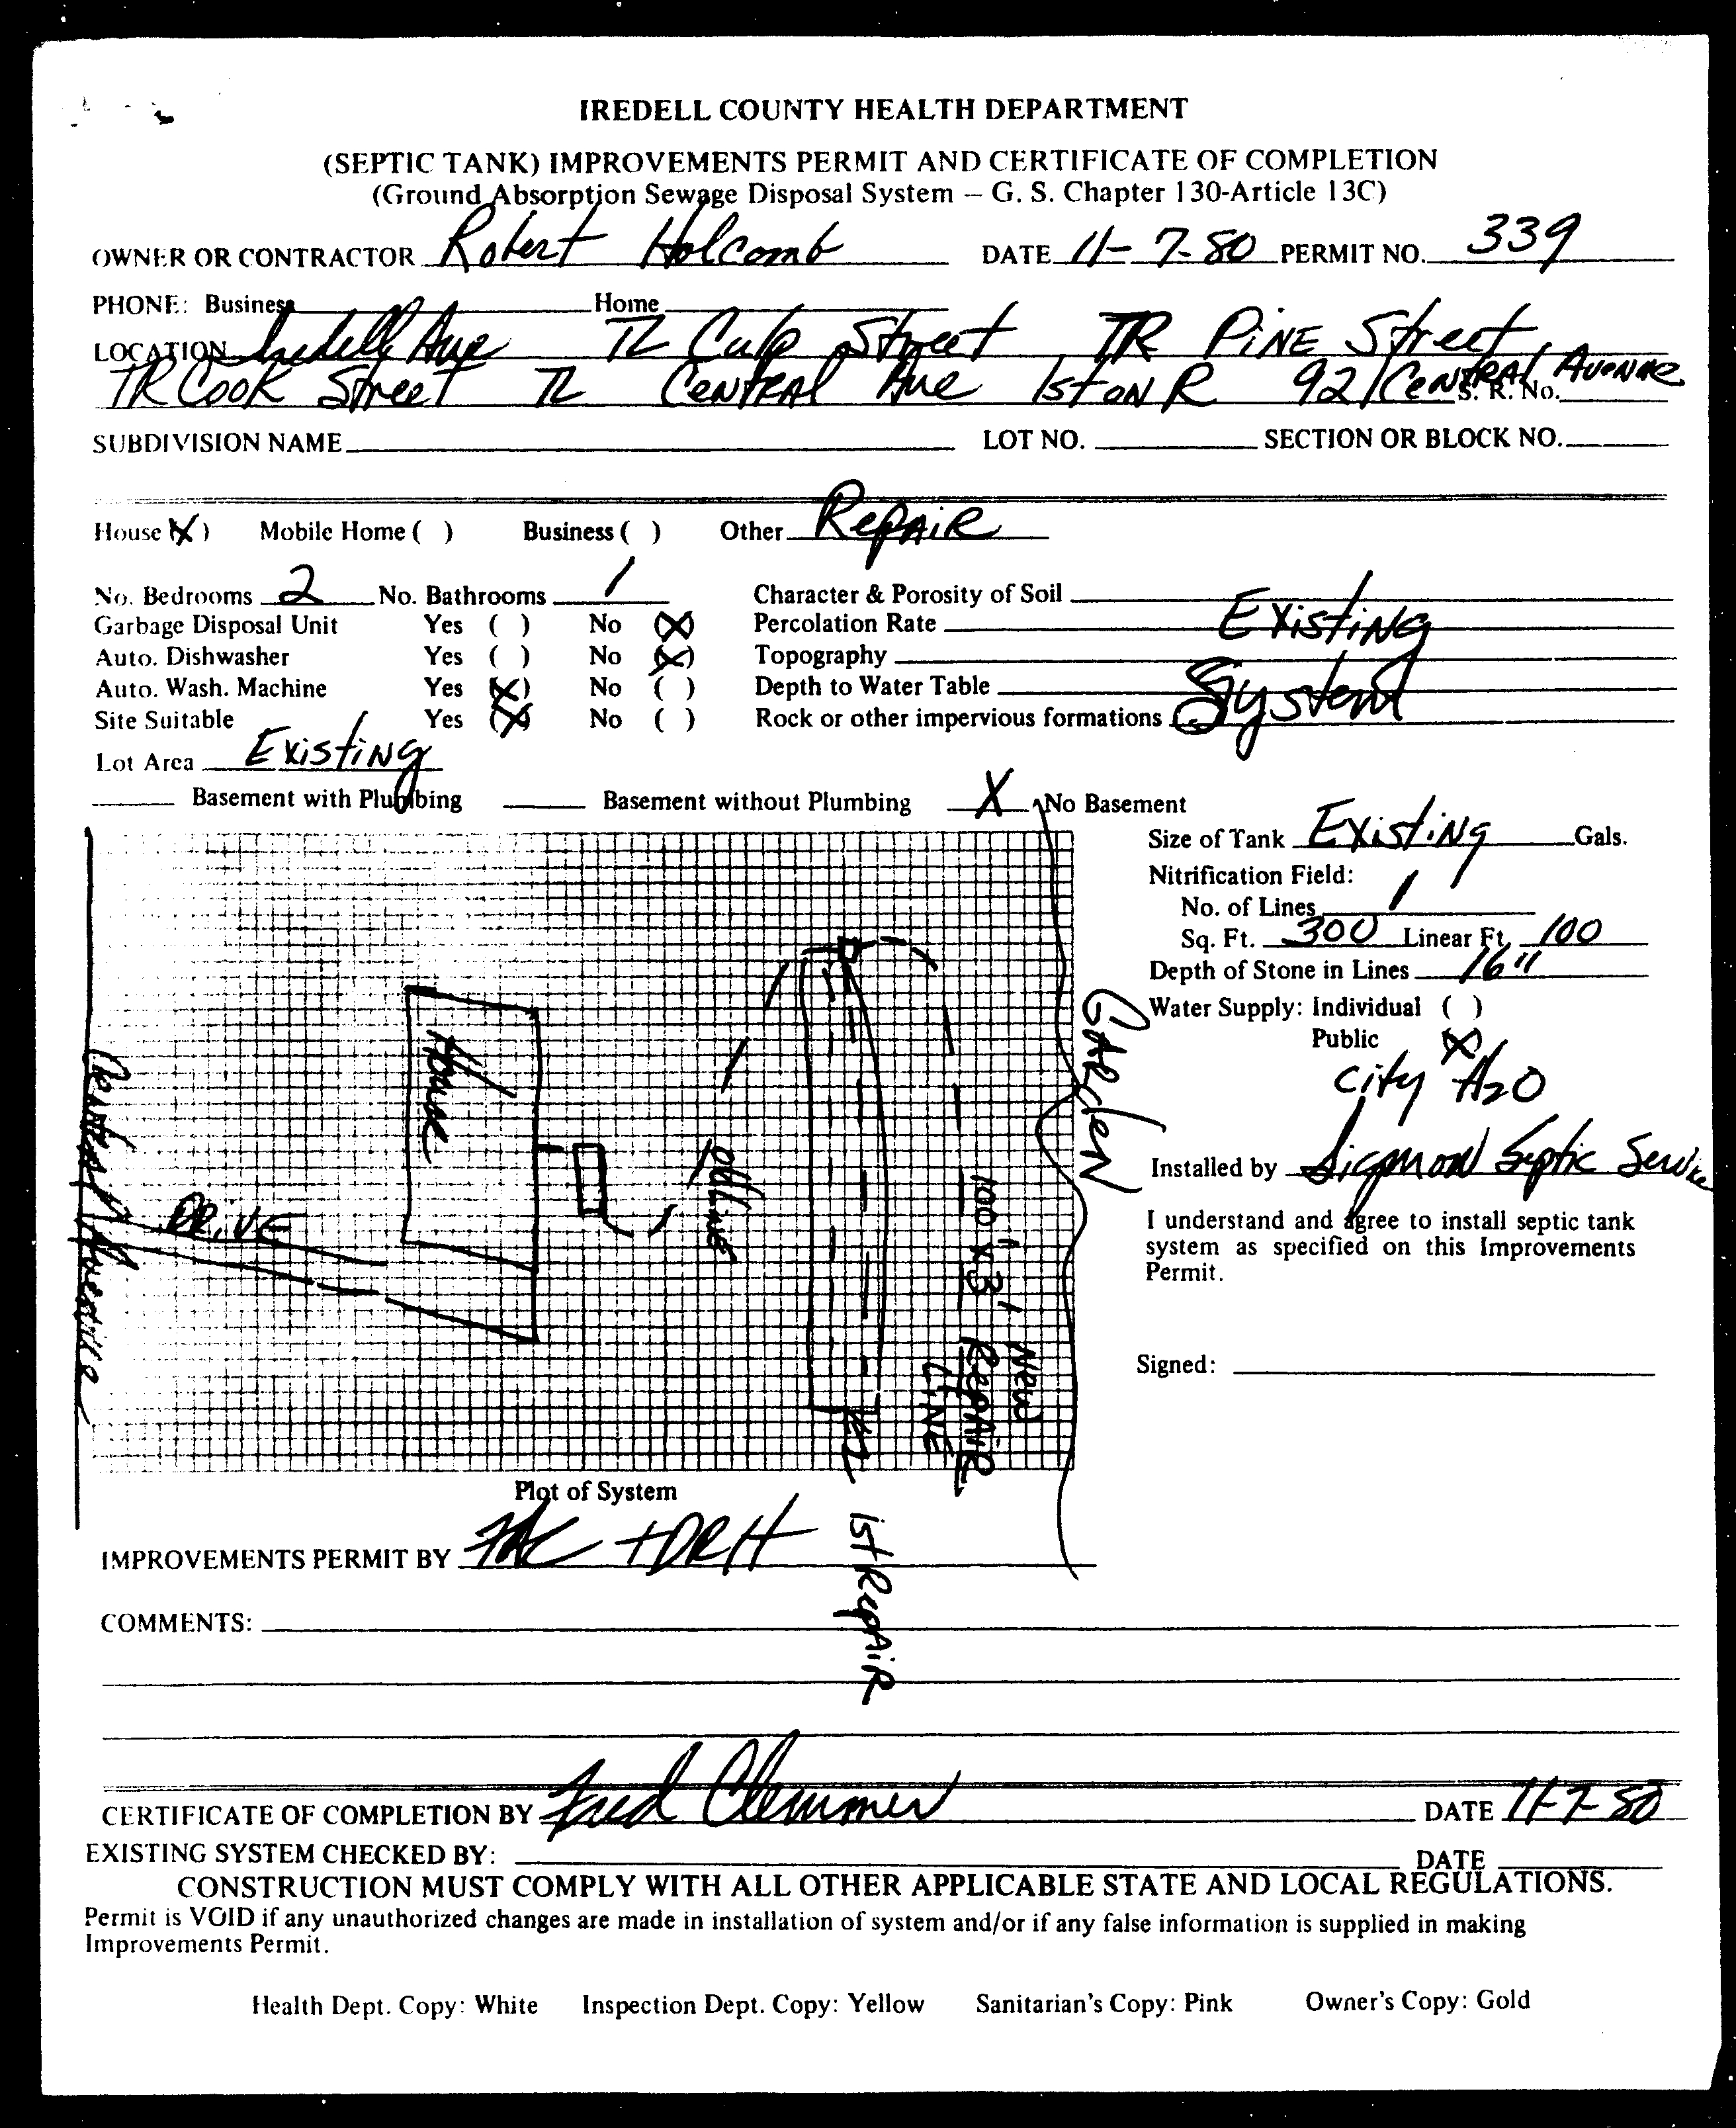 IREDELL COUNTY HEALTH DEPARTMENT
(SEPTIC TANK) IMPROVEMENTS PERMIT AND CERTIFICATE OF COMPLETION
(Ground Absorption Sewage Disposal System — G. S. Chapter 130-Article 13C)
OWNER OR CONTRACTOR Robert Holcomb DATE 11-7-80 PERMIT NO. 339
PHONE: Business Home
LOCATION Iredell Ave TL Culp Street TR PINE Street,
TR COOK Street TL CENTRAL Ave 1st ON R 921 CENTRAL AVENUE S. R. No.
SUBDIVISION NAME LOT NO. SECTION OR BLOCK NO.
House (X) Mobile Home ( ) Business ( ) Other REPAIR
No. Bedrooms 2 No. Bathrooms 1 Character & Porosity of Soil
Garbage Disposal Unit Yes ( ) No (X) Percolation Rate EXISTING
Auto. Dishwasher Yes ( ) No (X) Topography
Auto. Wash. Machine Yes (X) No ( ) Depth to Water Table System
Site Suitable Yes (X) No ( ) Rock or other impervious formations
Lot Area EXISTING
Basement with Plumbing Basement without Plumbing X No Basement
Size of Tank EXISTING Gals.
Nitrification Field:
No. of Lines 1
Sq. Ft. 300 Linear Ft. 100
Depth of Stone in Lines 16"
Water Supply: Individual ( )
Public (X)
City H2O
Installed by Sigmon Septic Service
I understand and agree to install septic tank
system as specified on this Improvements
Permit.
Signed:
House
DRIVE
old LINE
100' x 3' New
REPAIR
LINE
GARDEN
1st REPAIR
Plot of System
IMPROVEMENTS PERMIT BY + DRH
COMMENTS:
CERTIFICATE OF COMPLETION BY Fred Clemmer DATE 11-7-80
EXISTING SYSTEM CHECKED BY: DATE
CONSTRUCTION MUST COMPLY WITH ALL OTHER APPLICABLE STATE AND LOCAL REGULATIONS.
Permit is VOID if any unauthorized changes are made in installation of system and/or if any false information is supplied in making
Improvements Permit.
Health Dept. Copy: White Inspection Dept. Copy: Yellow Sanitarian's Copy: Pink Owner's Copy: Gold